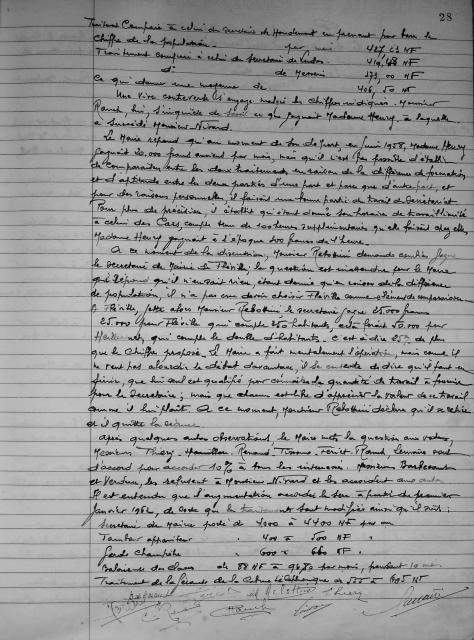 28
Traitement Comparé à celui du secrétaire de Houdemont en prenant pour base le
Chiffre de la population. par mois 427,51 NF
Traitement comparé à celui du secrétaire de Ludres 419,48 NF
d° de Messein 373,00 NF
ce qui donne une moyenne de 406,50 NF
Une vive controverse s'engage malgré les chiffres indiqués. Monsieur
Rauch, lui, s'inquiète de ce que gagnait Madame Henry, à laquelle
a succédé Monsieur Nivard.
Le Maire répond qu'au moment de son départ en Juin 1958, Madame Henry
gagnait 20.000 francs anciens par mois, mais qu'il n'est pas possible d'établir
de comparaison entre les deux traitements en raison de la différence de formation
et d'aptitude entre les deux parties d'une part et parce que d'autre part, et
pour des raisons personnelles, il faisait une bonne partie du travail du Secrétariat
Pour plus de précision, il établit qu'étant donné son horaire de travail limité
à celui des Cars, compte tenu de heures supplémentaires qu'elle faisait chez elle,
Madame Henry gagnait à l'époque 200 francs de l'heure.
A ce moment de la discussion, Monsieur Rebohini demande combien gagne
le secrétaire de Mairie de Fléville, la question est inattendue pour le Maire
qui répond qu'il n'en sait rien, étant donné qu'en raison de la différence
de population, il n'a pas cru devoir choisir Fléville comme élément de comparaison
A Fléville, jette alors Monsieur Rebohini le secrétaire gagne 25.000 francs
25.000 pour Fléville qui compte 250 habitants, cela ferait 50.000 pour
qui compte le double d'habitants. C'est à dire 25% de plus
que le chiffre proposé. Le Maire a fait mentalement l'opération, mais comme il
ne veut pas alourdir le débat davantage, il se contente de dire qu'il faut en
finir, que lui seul est qualifié pour connaître la quantité de travail à fournir
par le Secrétaire ; mais que chacun est libre d'apprécier la valeur de ce travail
comme il lui plaît. A ce moment, Monsieur Rebohini déclare qu'il se retire
et il quitte la séance.
Après quelques autres observations, le Maire met la question aux voix,
Messieurs Thiery - Hamillon - Renaud - - - Rauch, Lemoine sont
d'accord pour accorder 10% à tous les intéressés. Messieurs
et Verdun, les refusent à Monsieur Nivard et les accordent aux autres
Il est entendu que l'augmentation accordée le sera à partir du premier
Janvier 1962, de sorte que les traitements sont modifiés ainsi qu'il suit :
Secrétaire de Mairie porté de 4000 à 4400 NF par an
Tambour appariteur . 400 à 500 NF "
Garde Champêtre . 600 à 660 NF .
Balayeuse des classes de 88 NF à 96,80 par mois, pendant 10 mois
Traitement de la Gérante de la Cabine téléphonique de 550 à 605 NF